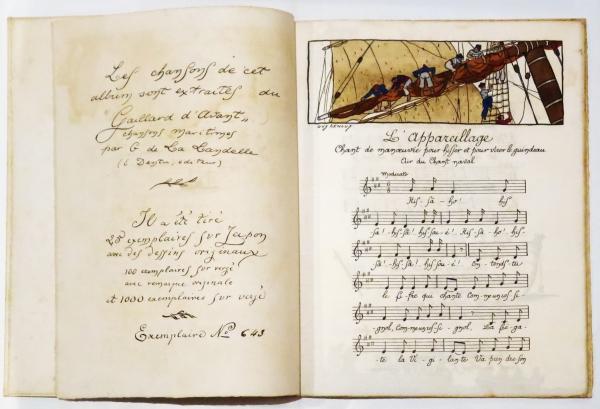 Les chansons de cet
album sont extraites du
Gaillard d'Avant"
chansons maritimes
par G de La Landelle
(E Dentu, éditeur)
Il a été tiré
25 exemplaires sur Japon
avec des dessins originaux
100 exemplaires sur vergé
avec remarque originale
et 1000 exemplaires sur vergé
Exemplaire No 643
L'Appareillage
Chant de manœuvre pour hisser et pour virer le guindeau
Air du Chant naval
Moderato
His - sa - ho! his
sa! his-sa! his sa-i! His-sa-ho! his-
sa! his-sa! his sa-i! En-tends-tu
le fi-fre qui chante Com-me un ros-si-
-gnol, Com-me un ros-si-gnol. La fré-ga-
-te la Vi-gi-lan-te Va pren-dre son